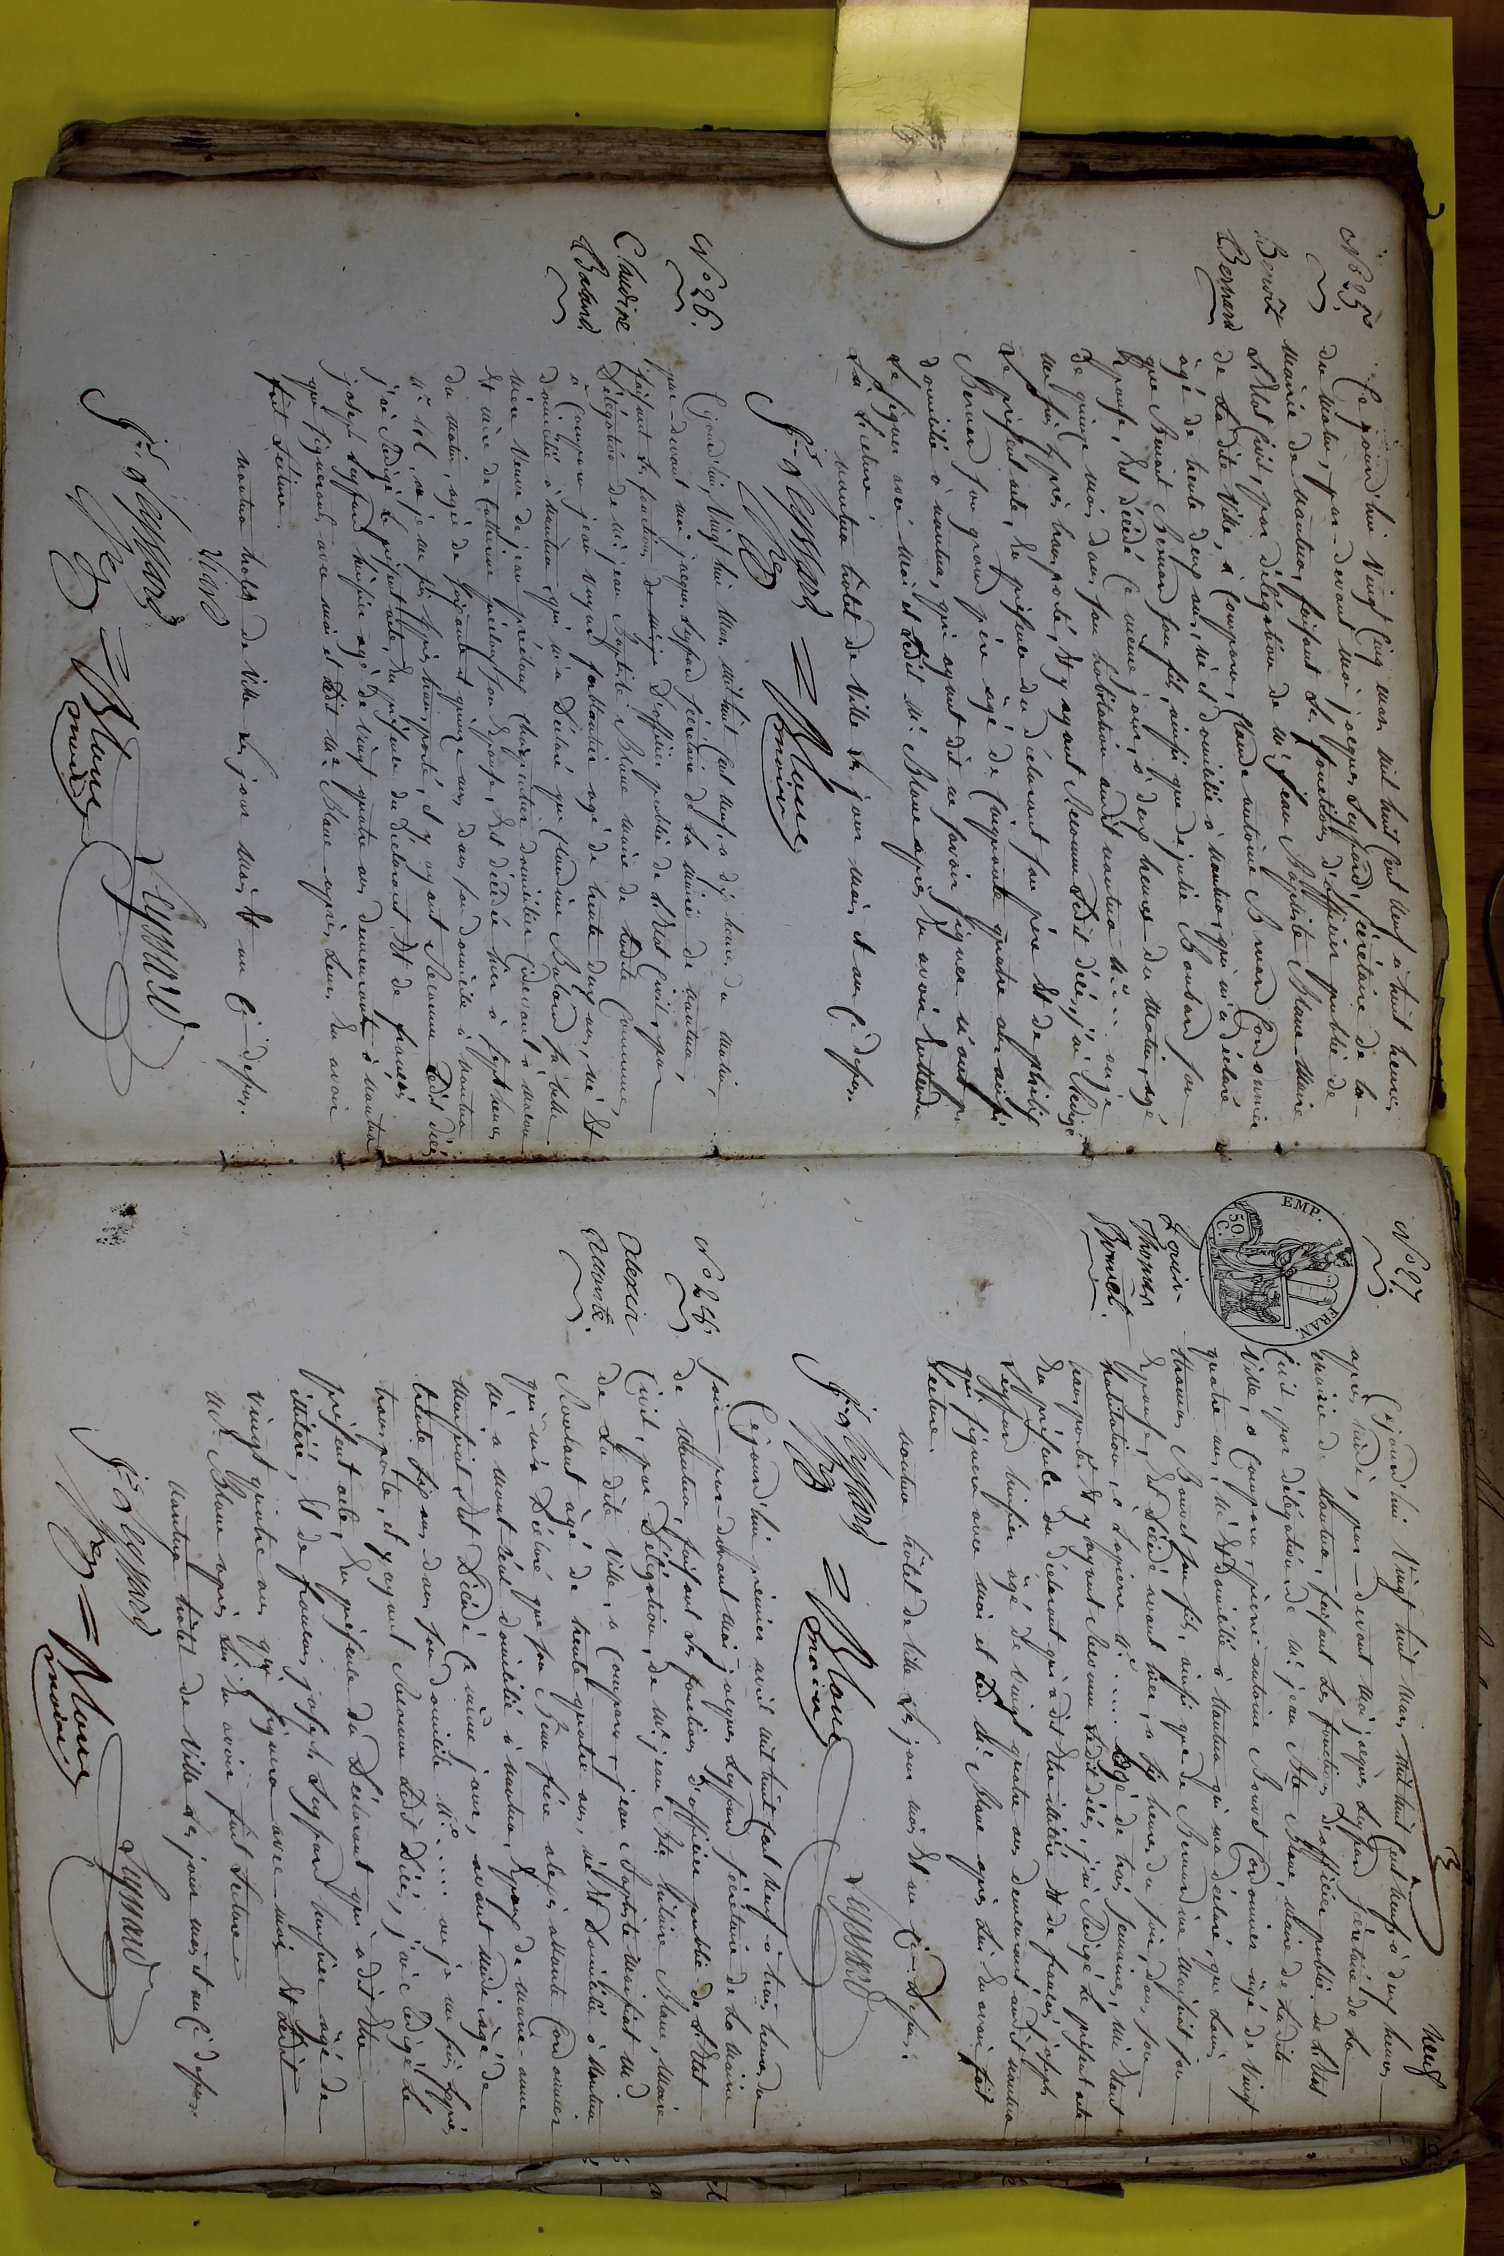 N° 25
Benoit
Bernard
Ce jourd'hui Vingt Cinq mars mil huit Cent neuf à huit heures
du matin, par-devant moi jacques Leyssard, sécrétaire de la
mairie de nantua, faisant les fonctions d'officier public de
L'Etat Civil, par délégation de Mr jean Baptiste Blanc Maire
de La dite Ville, a Comparu, Claude antoine Bernard Cordonnier
agé de trente deux ans, né et domicilié à nantua, qui m'a déclaré
que Benoit Bernard son fils, ainsi que de julie son
Epouse, Est décédé Ce même jour, à deux heures du matin, agé
de quinze mois, dans son habitation audit nantua n°
me suis Exprès transporté, Et y ayant Reconnu Ledit décés, j'ai Rédigé
Le présent acte, En présence du déclarant son père Et de
Bernard son grand père agé de Cinquante quatre ans aussi
domicilié à nantua, qui ayant dit ne savoir signer n'ont pu
Le signer avec moi et Ledit Mr Blanc après En avoir Entendu
La Lecture.
nantua hôtel de Ville Les jour mois et an Ci dessus.
Jes Leyssard = Blanc
maire
N° 26.
Claudine
Baland
Cejourd'hui, Vingt huit Mars mil huit Cent neuf, à dix heures du matin,
par-devant moi jacques Leyssard sécrétaire de la mairie de nantua,
faisant les fonctions d'officier public de L'Etat Civil, par
Délégation de Mr jean Baptiste Blanc maire de Ladite Commune,
a Comparu jean agé de trente deux ans, né Et
domicilié à nantua, qui m'a Déclaré que Claudine Baland sa belle
mère Veuve de jean
Et mère de Catherine son Epouse, Est décédée hier à sept heures
du matin, agée de Soixante et quinze ans, dans son domicile à nantua
n° où je me suis Exprès transporté, et y ayant Reconnu Ledit décés,
j'ai Rédigé Le présent acte, En présence du Déclarant Et de francois
joseph Leyssard huissier agé de Vingt quatre ans demeurant à nantua
qui signeront avec moi et Ledit Mr Blanc après Leur En avoir
fait Lecture.
nantua hotel de Ville Les jour mois Et an Ci-dessus.
Jes Leyssard = Blanc Leyssard
maire
neuf
N° 27
EMP. FRAN.
50 C.
Louis
Thomas
Bouvet.
Cejourd'hui Vingt huit Mars, mil huit Cent neuf, à deux heures
après midi, par-devant moi jacques Leyssard sécrétaire de la
mairie de nantua, faisant les fonctions d'officier public de L'Etat
Civil, par délégation de Mr jean Bte Blanc, Maire de Ladite
Ville, a Comparu, pierre antoine Bouvet Cordonnier agé de Vingt
quatre ans, né Et Domicilié à Nantua qui m'a déclaré, que Louis
thomas Bouvet son fils, ainsi que de Bernardine Maissiat son
Epouse, Est Décédé avant hier, à six heures du soir, dans son
habitation, à Lapierre n° .... agé de trois semaines, m'étant
transporté Et y ayant Reconnu Ledit décés, j'ai Rédigé Le présent acte
En présence du déclarant qui a dit Etre illitéré Et de francois joseph
Leyssard huissier agé de Vingt quatre ans demeurant audit nantua
qui signera avec moi et Led. Mr Blanc après Lui En avoir fait
Lecture.
nantua hôtel de Ville Les jour mois Et an Ci-Dessus.
Jes Leyssard = Blanc Leyssard
maire
N° 28.
Alexis
Amonte.
Cejourd'hui prémier avril mil huit Cent neuf à trois heures du
soir par-devant moi jacques Leyssard sécrétaire de La mairie
de Nantua, faisant les fonctions d'officier public de L'Etat
Civil, par Délégation, de Mr jean Bte hilaire Blanc, Maire
de La dite Ville, a Comparu, jean Baptiste Maissiat
agé de trente quatre ans, né Et Domicilié à Nantua
qui m'a Déclaré que son Beau frère alexis amonte Cordonnier
né à mont réal domicilié à nantua, Epoux de Marie-anne
Maissiat Est Décédé Ce même jour, avant midi agé de
trente six ans, dans son domicile n° .... où je me suis Exprès
transporté, et y ayant Reconnu Ledit Décés, j'ai Rédigé Le
présent acte, En présence du Déclarant qui a dit Etre
illitéré, Et de francois joseph Leyssard huissier agé de
vingt quatre ans qui signera avec moi Et Ledit
Mr Blanc après Lui En avoir fait Lecture
nantua hôtel de Ville Les jour mois et an Ci dessus.
Jes Leyssard = Blanc Leyssard
maire